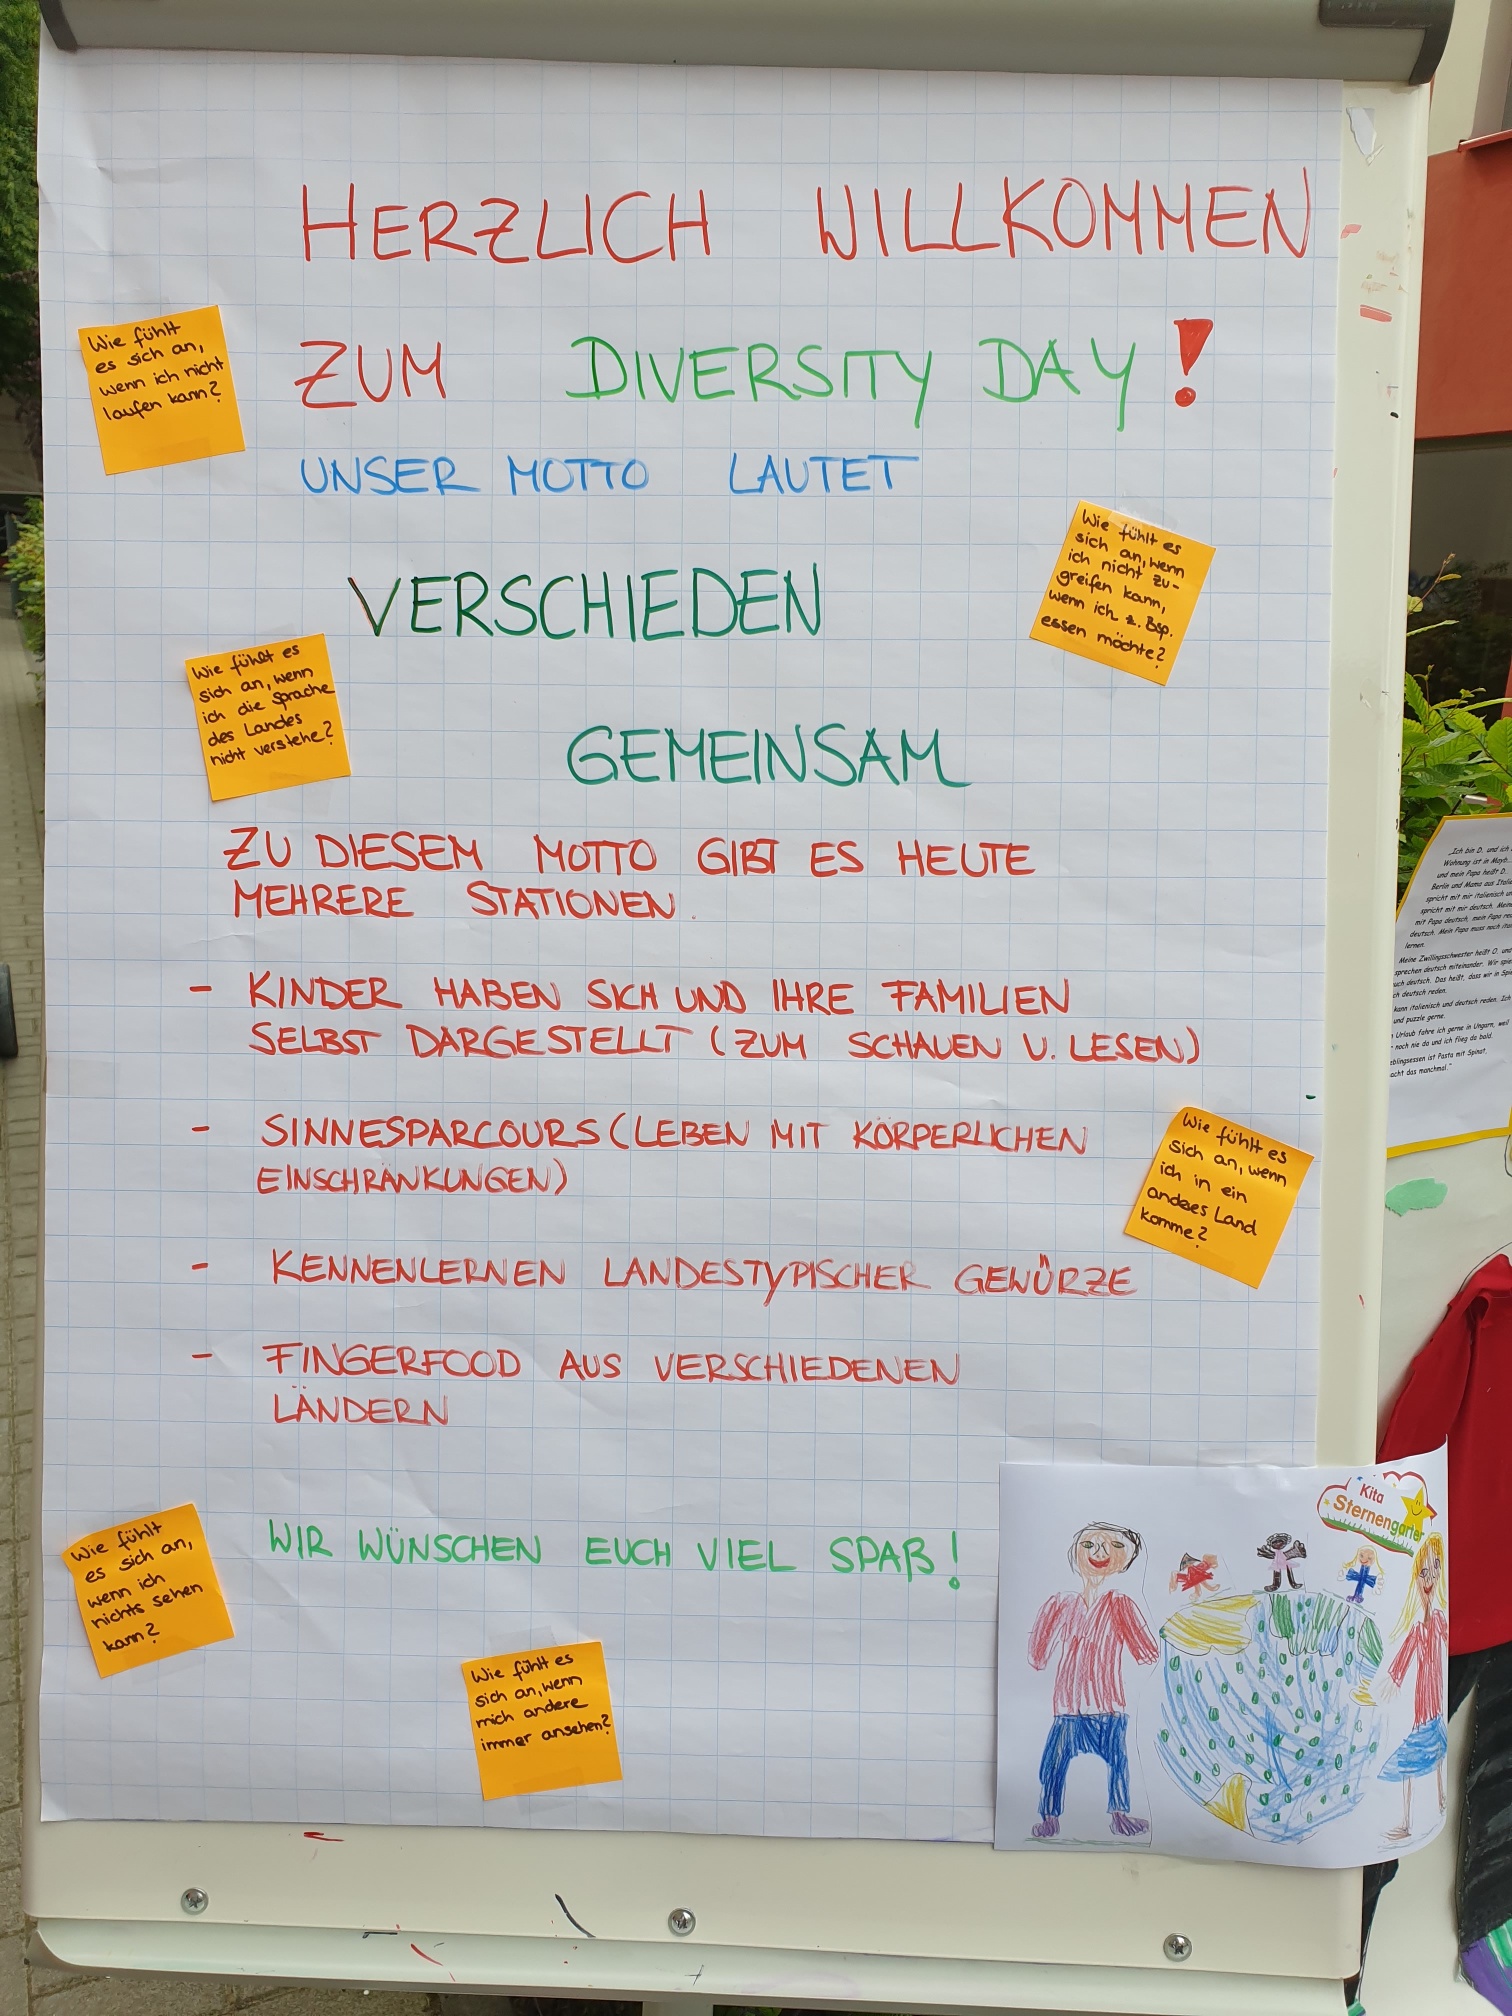 HERZLICH WILLKOMMEN
ZUM DIVERSITY DAY!
UNSER MOTTO LAUTET
VERSCHIEDEN
GEMEINSAM
ZU DIESEM MOTTO GIBT ES HEUTE
MEHRERE STATIONEN.
- KINDER HABEN SICH UND IHRE FAMILIEN
SELBST DARGESTELLT (ZUM SCHAUEN U. LESEN)
- SINNESPARCOURS (LEBEN MIT KÖRPERLICHEN
EINSCHRÄNKUNGEN)
- KENNENLERNEN LANDESTYPISCHER GEWÜRZE
- FINGERFOOD AUS VERSCHIEDENEN
LÄNDERN
WIR WÜNSCHEN EUCH VIEL SPAß!
Wie fühlt
es sich an,
wenn ich nicht
laufen kann?
Wie fühlt es
sich an, wenn
ich nicht zu-
greifen kann,
wenn ich z. Bsp.
essen möchte?
Wie fühlt es
sich an, wenn
ich die Sprache
des Landes
nicht verstehe?
Wie fühlt es
sich an, wenn
ich in ein
anderes Land
komme?
Wie fühlt
es sich an,
wenn ich
nichts sehen
kann?
Wie fühlt es
sich an, wenn
mich andere
immer ansehen?
Kita
Sternengarten
„Ich bin D. und ich
Wohnung ist in
und mein Papa heißt D.
Berlin und Mama aus
spricht mit mir italienisch
spricht mit mir deutsch.
mit Papa deutsch, mein Papa
deutsch. Mein Papa muss noch
lernen.
Meine Zwillingsschwester heißt O. und
sprechen deutsch miteinander. Wir
deutsch. Das heißt, dass wir in
deutsch reden.
kann italienisch und deutsch reden. Ich
und puzzle gerne.
Urlaub fahre ich gerne in Ungarn, weil
noch nie da und ich flieg da bald.
ist Pasta mit Spinat.
das manchmal."